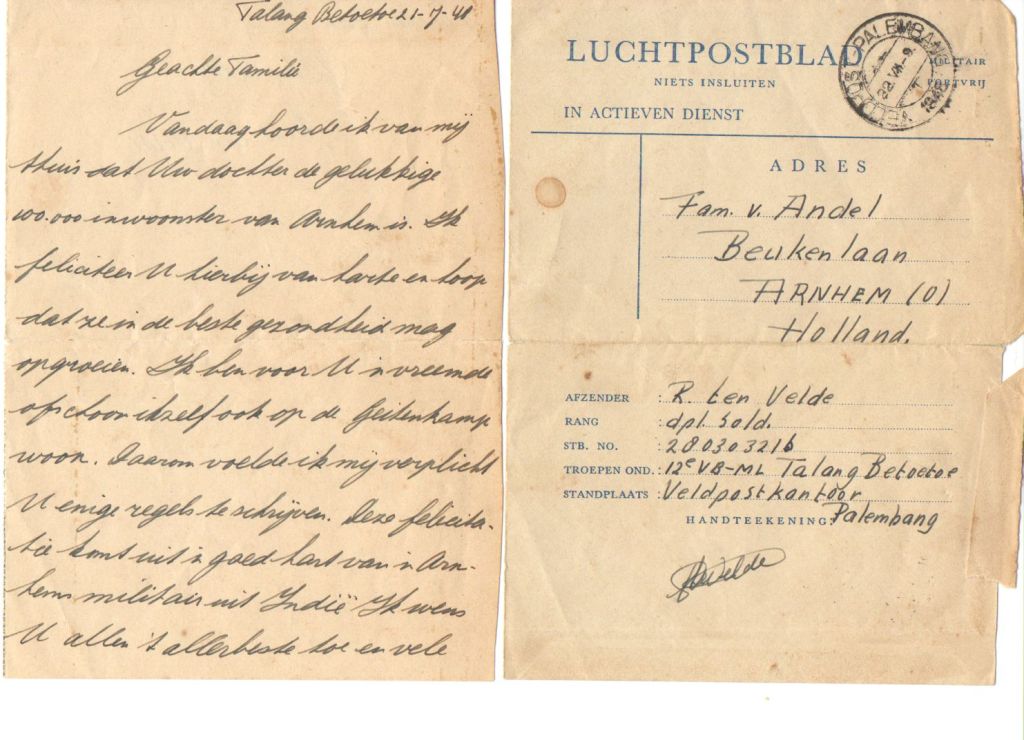 Talang Betoetoe 21-7-48
Geachte Familie
Vandaag hoorde ik van mij
thuis dat Uw dochter de gelukkige
100.000 inwoonster van Arnhem is. Ik
feliciteer U hierbij van harte en hoop
dat ze in de beste gezondheid mag
opgroeien. Ik ben voor U 'n vreemde
ofschoon ik zelf ook op de Geitenkamp
woon. Daarom voelde ik mij verplicht
U enige regels te schrijven. Deze felicita-
tie komt uit 'n goed hart van 'n Arn-
hems militair uit Indië Ik wens
U allen 't allerbeste toe en vele
LUCHTPOSTBLAD
MILITAIR
PORTVRIJ
NIETS INSLUITEN
IN ACTIEVEN DIENST
PALEMBANG
VELDPOST
ADRES
Fam. v. Andel
Beukenlaan
ARNHEM (O)
Holland.
AFZENDER : R. ten Velde
RANG : dpl. sold.
STB. NO. : 280303216
TROEPEN OND. : 12e VB-ML Talang Betoetoe
STANDPLAATS : Veldpostkantoor
Palembang
HANDTEEKENING: